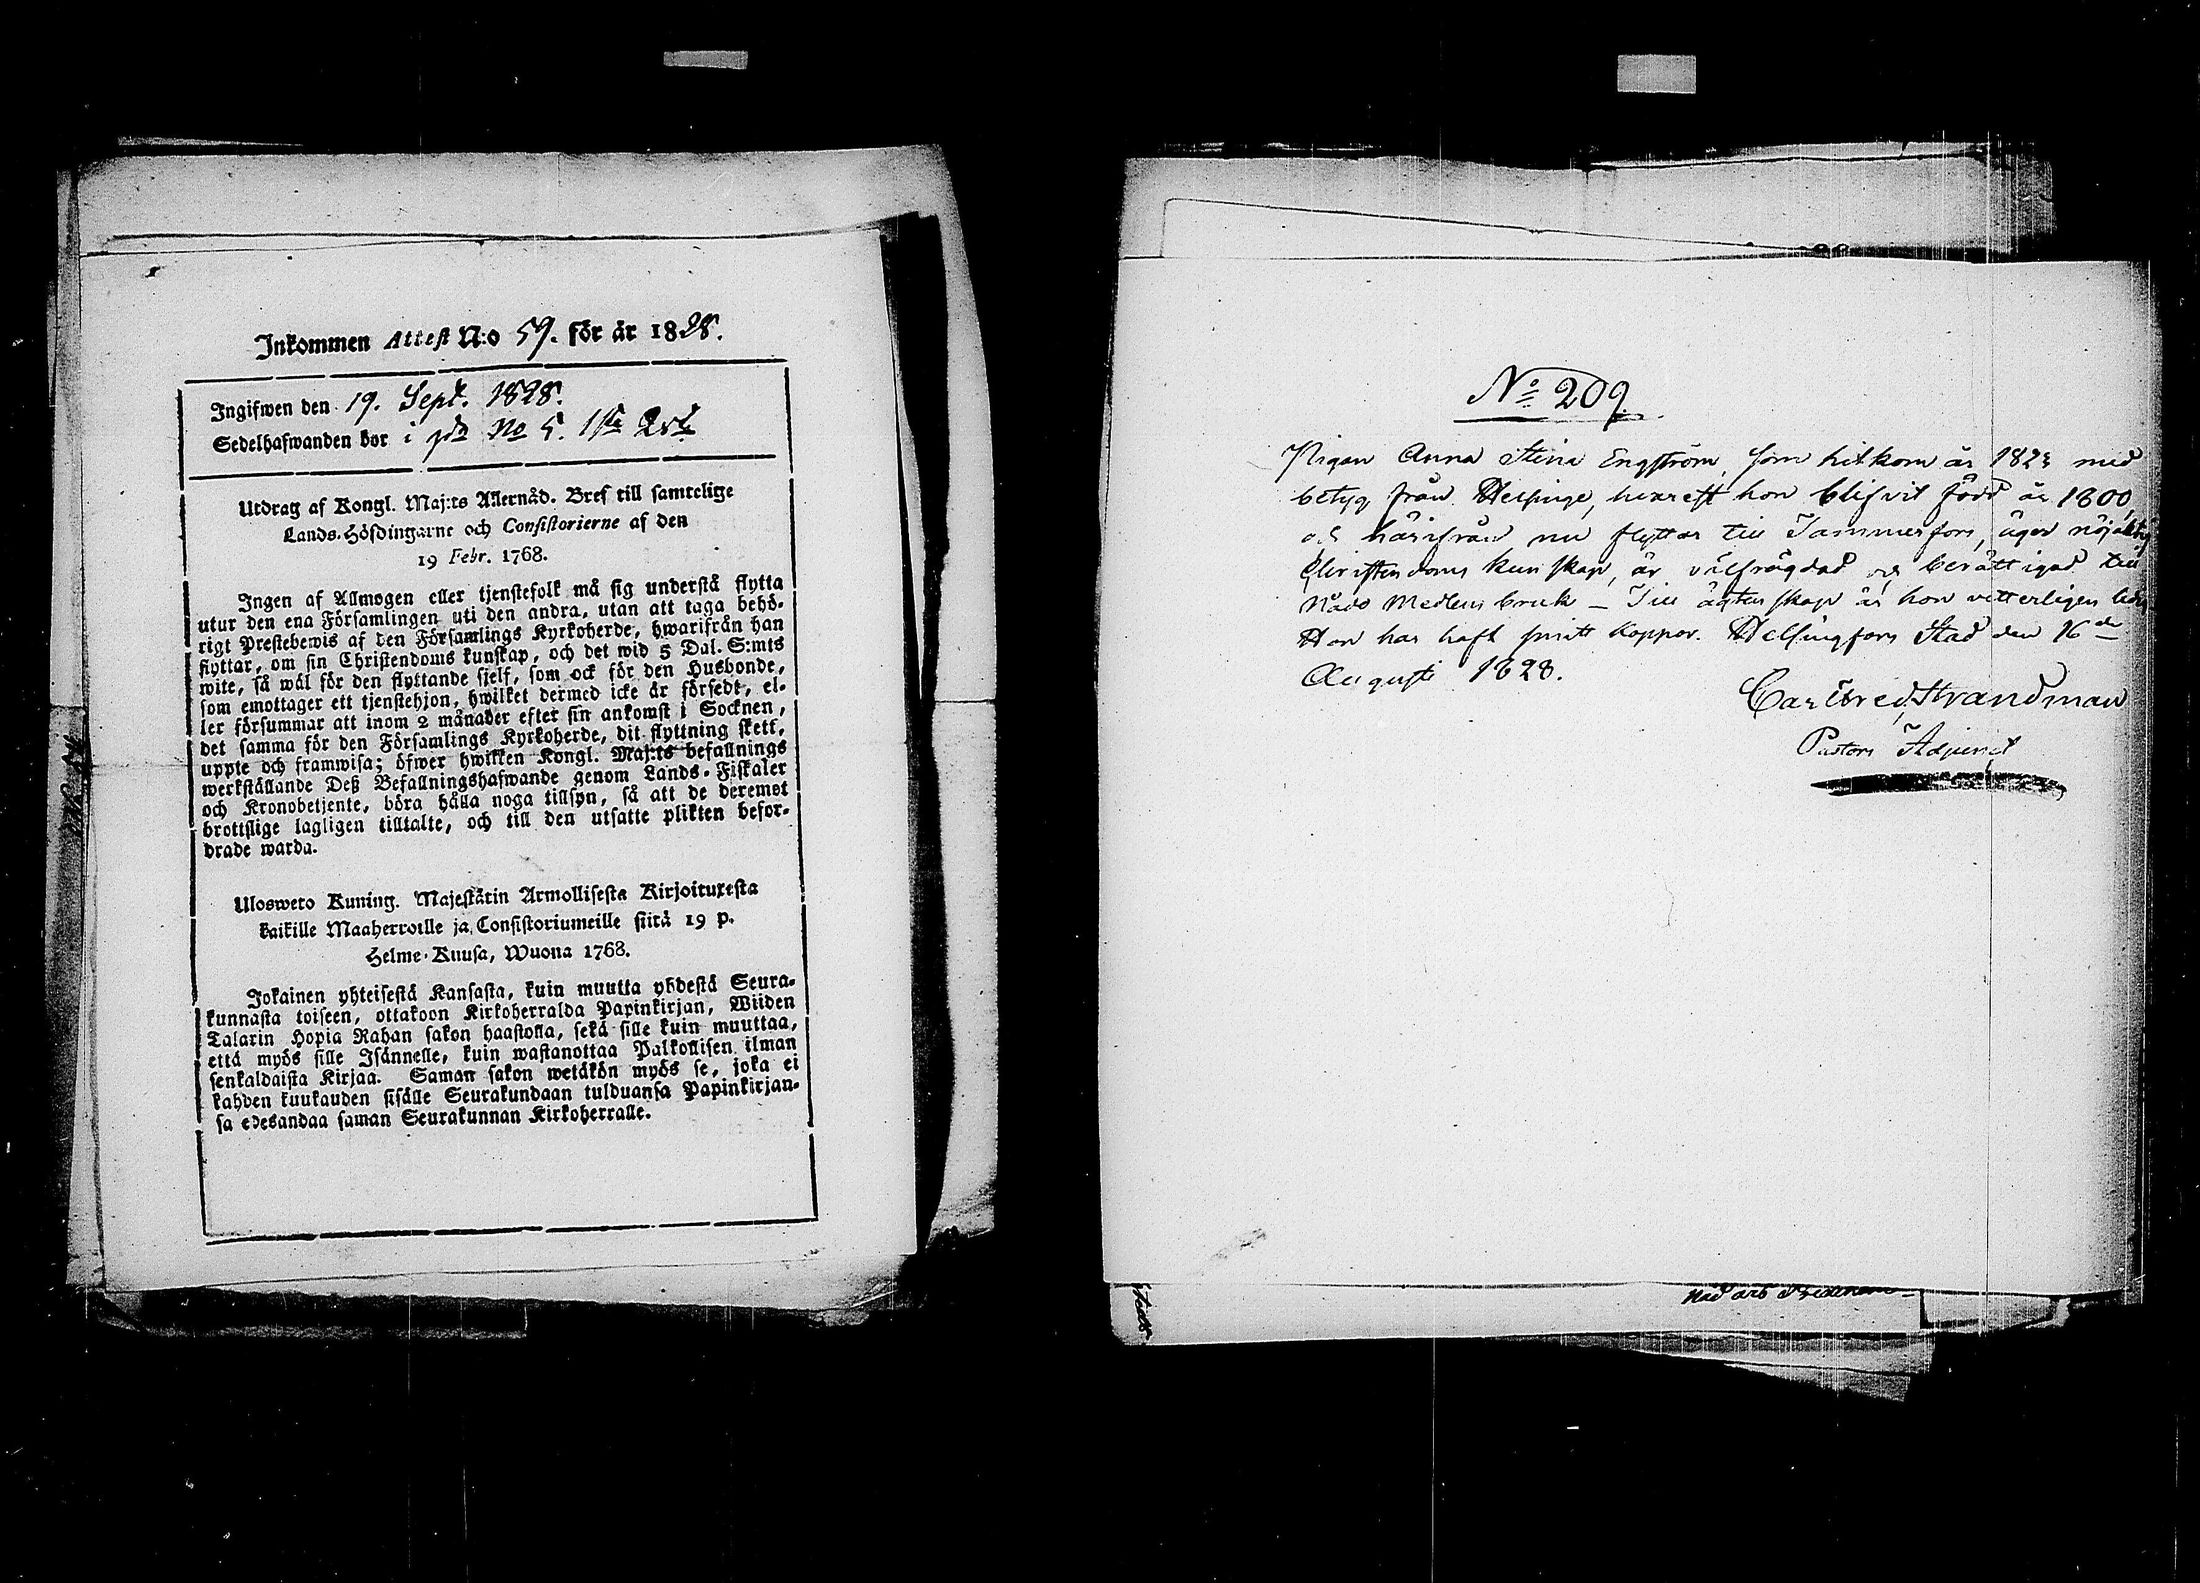 Inkommen Attest N:o 59. för år 1828.
Ingifwen den 19. Sept. 1828.
Sedelhafwanden bor i gdn No 5. 1sta
Utdrag af Kongl. Maj:ts Allernåd. Bref till samtelige
Lands-Höfdingarne och Consistorierne af den
19 Febr. 1768.
Ingen af Allmogen eller tjenstefolk må sig understå flytta
utur den ena Församlingen uti den andra, utan att taga behö-
rigt Prestebewis af den Församlings Kyrkoherde, hwarifrån han
flyttar, om sin Christendoms kunskap, och det wid 5 Dal. S:mts
wite, så wäl för den flyttande sjelf, som ock för den Husbonde,
som emottager ett tjenstehjon, hwilket dermed icke är försedt, el-
ler försummar att inom 2 månader efter sin ankomst i Socknen,
det samma för den Församlings Kyrkoherde, dit flyttning skett,
uppte och framwisa; öfwer hwilken Kongl. Maj:ts befallnings
werkställande Deß Befallningshafwande genom Lands-Fiskaler
och Kronobetjente, böra hålla noga tillsyn, så att de deremot
brottslige lagligen tilltalte, och till den utsatte plikten befor-
drade warda.
Ulosweto Kuning. Majestätin Armollisesta Kirjoituxesta
kaikille Maaherroille ja Consistoriumeille siitä 19 p.
Helme-Kuusa, Wuona 1768.
Jokainen yhteisestä Kansasta, kuin muutta yhdestä Seura-
kunnasta toiseen, ottakoon Kirkoherralda Papinkirjan, Wiiden
Talarin Hopia Rahan sakon haastolla, sekä sille kuin muuttaa,
että myös sille Isännelle, kuin wastanottaa Palkollisen ilman
senkaldaista Kirjaa. Saman sakon wetäkön myös se, joka ei
kahden kuukauden sisälle Seurakundaan tulduansa Papinkirjan-
sa edesandaa saman Seurakunnan Kirkoherralle.
No 209
Pigan Anna Stina Engström, som hitkom år 1823 med
betyg från Helsinge, hvarest hon blifvit född år 1800,
och härifrån nu flyttar till Tammerfors, äger nöjaktig
Christendoms kunskap, är välfrägdad och berättigad till
Nådo Medlens bruk – Till ägtenskap är hon vitterligen ledig
Hon har haft smitt koppor. Helsingfors Stad den 16de
Augusti 1828.
Carl Fred. Strandman
Pastors Adjunct